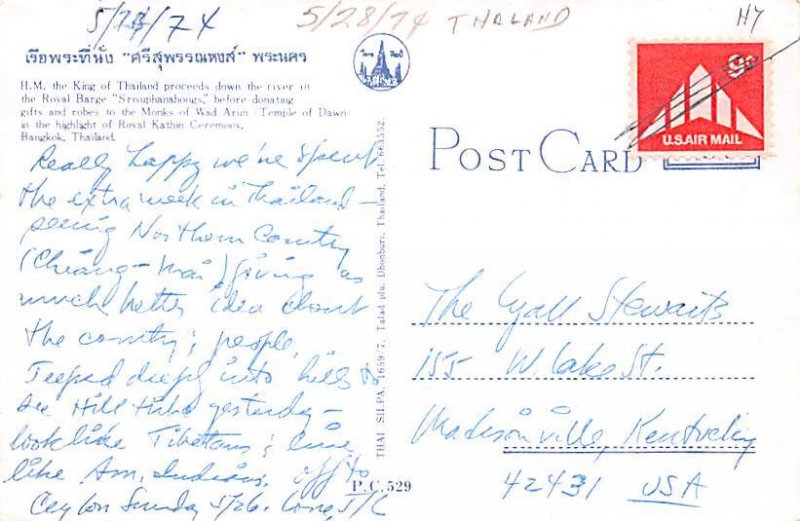 5/24/74
5/28/74 THALAND
H7
เรือพระที่นั่ง "ศรีสุพรรณหงส์" พระนคร
H.M. the King of Thailand proceeds down the river in
the Royal Barge "Srisuphanahongs," before donating
gifts and robes to the Monks of Wad Arun (Temple of Dawn
in the highlight of Royal Kathin Ceremony,
Bangkok, Thailand.
9c
U.S. AIR MAIL
POST CARD
Really happy we've spent
the extra week in Thailand –
seeing Northern Country
(Chiang-Mai) giving us
much better idea about
the country; people.
Jeeped deeply into hills to
see Hill tribe yesterday –
look like Tibetans; live
like Am. Indians. off to
Ceylon Sunday 5/26. Love, S/C
THAI SILPA, 1659/7, Talad plu, Dhonburi, Thailand. Tel. 663352.
P.C.529
The Lyall Stewarts
155 W. Lake St.
Madisonville, Kentucky
42431 USA